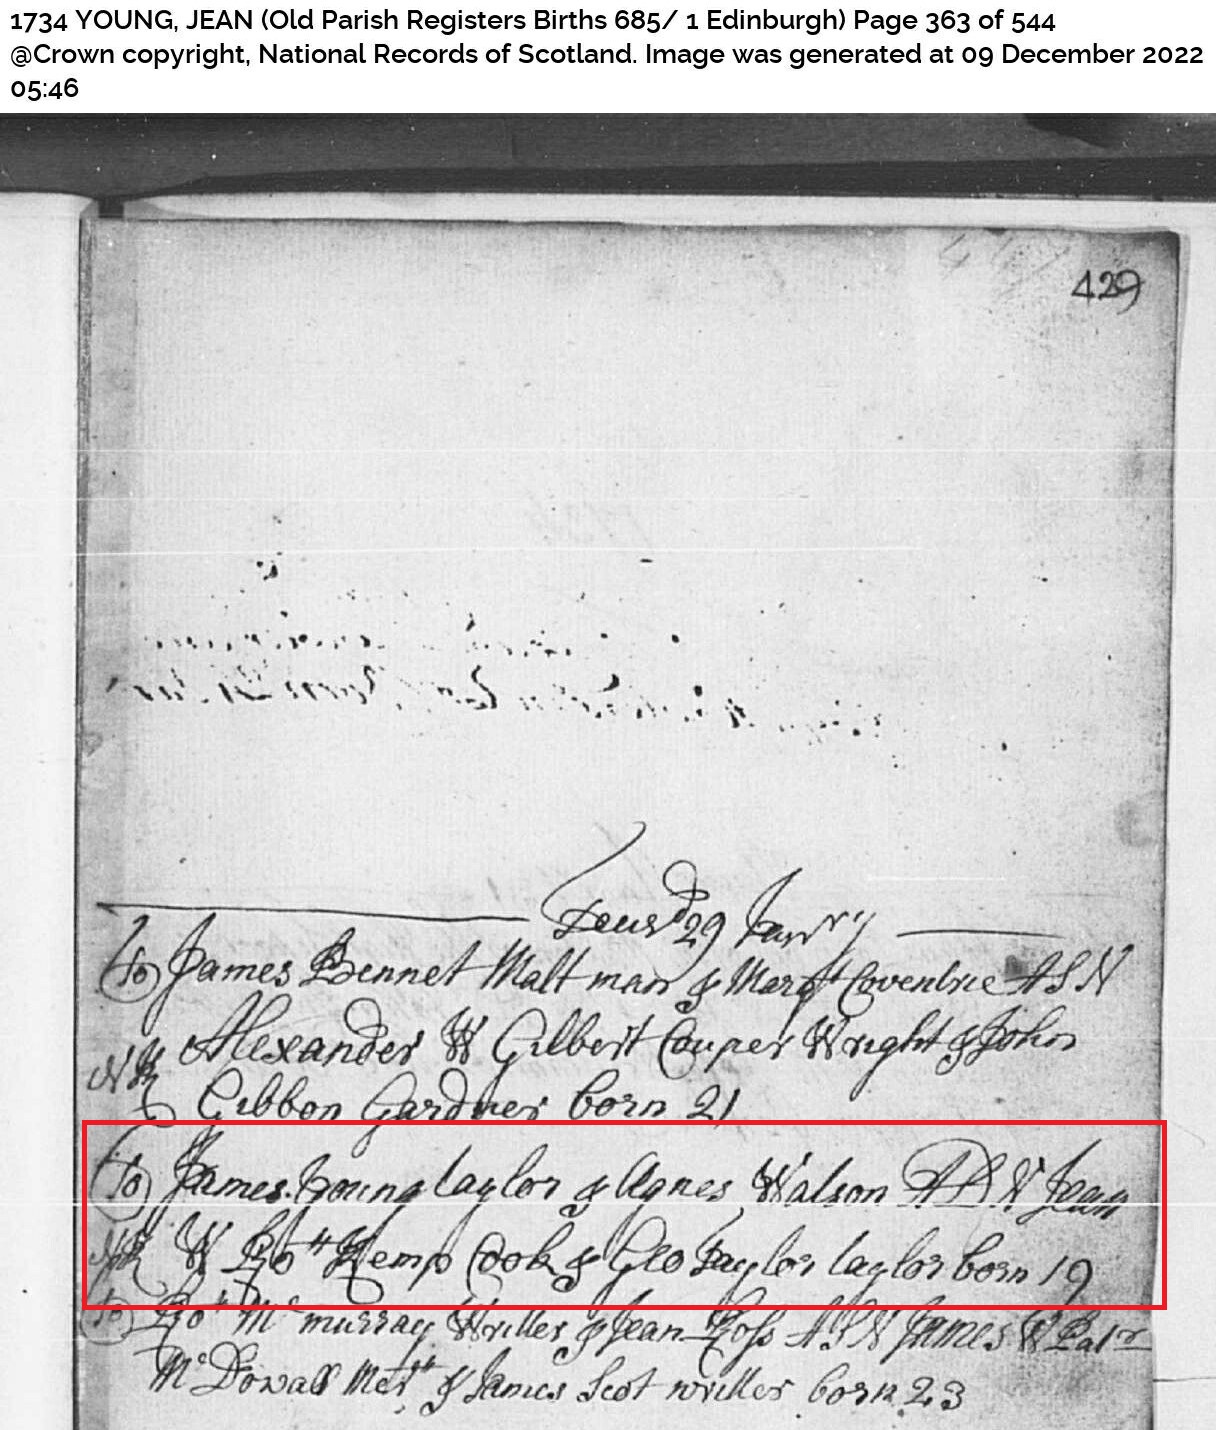 1734 YOUNG, JEAN (Old Parish Registers Births 685/ 1 Edinburgh) Page 363 of 544
@Crown copyright, National Records of Scotland. Image was generated at 09 December 2022
05:46
429
29 Janry
To James Bennet Maltman & Margt Coventrie A S N
Alexander W Gilbert Couper Wright & John
Gibbon Gardner born 21
To James Young taylor & Agnes Watson A D N Jean
W Rot Kemp Cook & Geo Taylor taylor born 19
To Rot Mcmurray Writter & Jean Ross A S N James W Patr
McDowall Mert & James Scot writter born 23